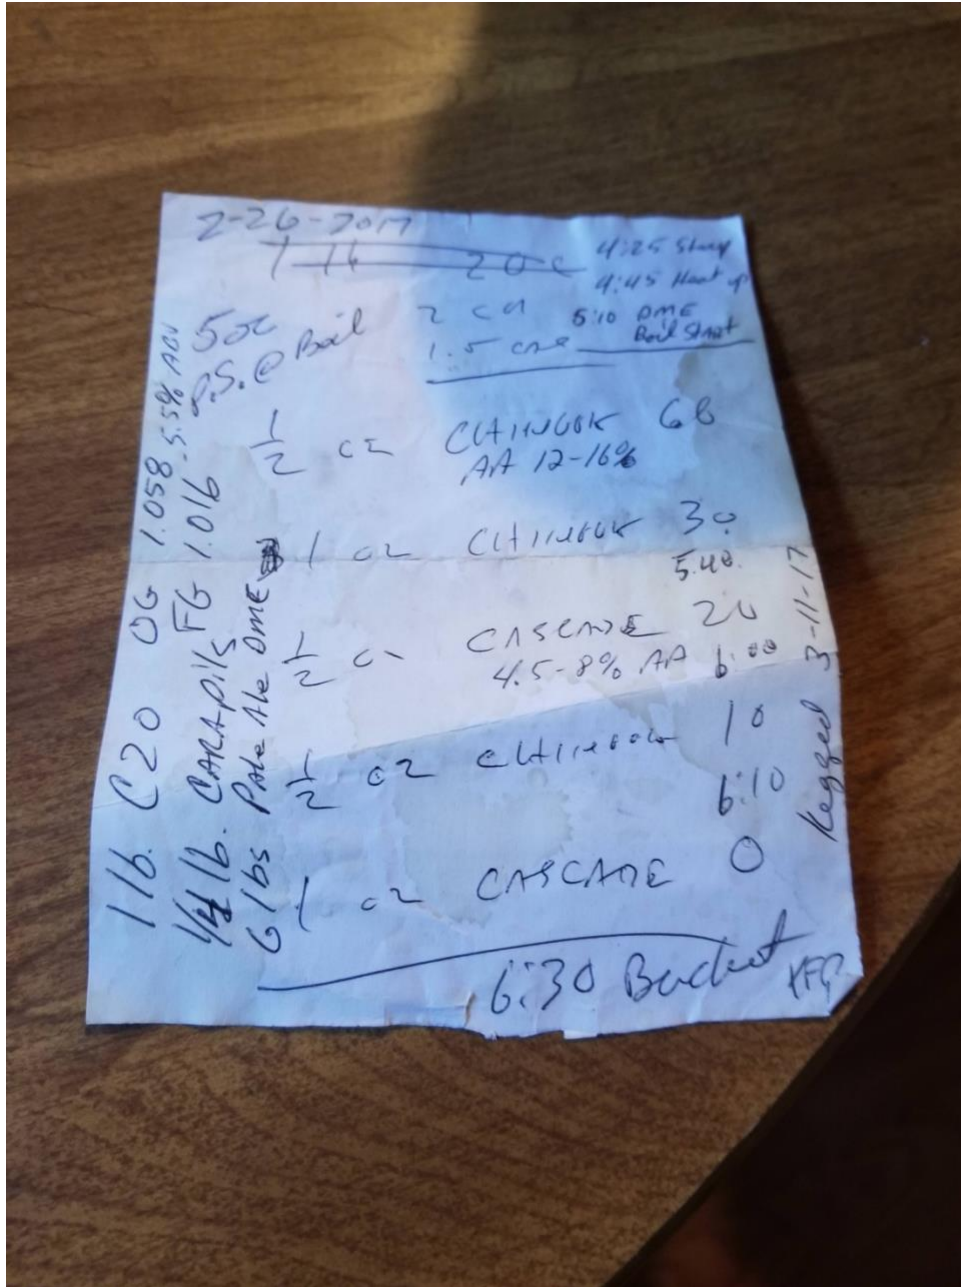 2-26-2017
1 lb 20 c
4:25 Steep
4:45 Heat up
5:10 DME
Boil Start
5oz
P.S. @ Boil
2 ca
1.5 cas
1/2 oz CHINOOK 60
AA 12-16%
1 oz CHINOOK 30
5:40
1/2 oz CASCADE 20
4.5-8% AA 6:00
1/2 oz CHINOOK 10
6:10
1 oz CASCADE 0
6:30 Bucket
1 lb. C20 OG 1.058 - 5.5% ABV
1/4 lb. CARApils FG 1.016
6 lbs Pale Ale DME
Kegged 3-11-17